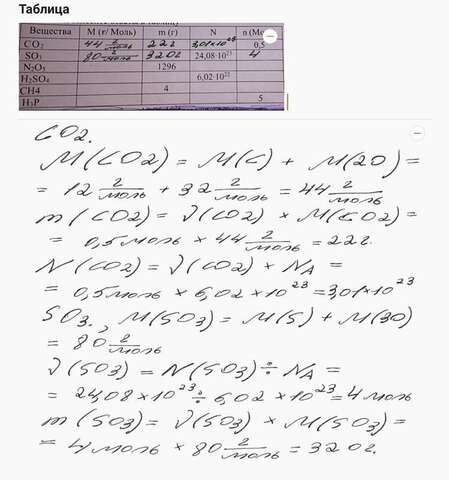 Таблица
Вещества M (г/ Моль) m (г) N n (Мо
CO₂ 44 г/моль 22г 3,01×10²³ 0,5
SO₃ 80 г/моль 320г 24,08·10²³ 4
N₂O₅ 1296
H₂SO₄ 6,02·10²²
CH4 4
H₃P 5
CO2.
M(CO2) = M(C) + M(2O) =
= 12 г/моль + 32 г/моль = 44 г/моль
m(CO2) = √(CO2) × M(CO2) =
= 0,5 моль × 44 г/моль = 22г.
N(CO2) = √(CO2) × NA =
= 0,5 моль × 6,02 × 10²³ = 3,01×10²³
SO3., M(SO3) = M(S) + M(3O)
= 80 г/моль
√(SO3) = N(SO3) ÷ NA =
= 24,08 × 10²³ ÷ 6,02 × 10²³ = 4 моль
m(SO3) = √(SO3) × M(SO3) =
= 4 моль × 80 г/моль = 320г.